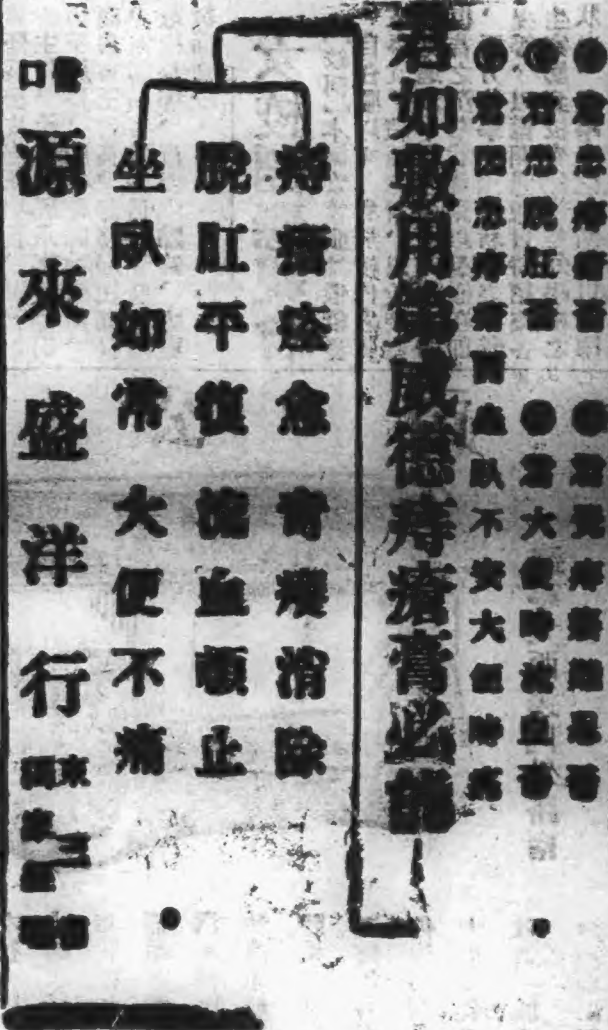 ●君患痔瘡否
●君覺痔瘡難忍否
●君患脫肛否
●君大便時流血否
●君因患痔瘡而坐臥不安大便時痛
君如敷用第威德痔瘡膏必能
痔瘡痊愈 奇癢消除
脫肛平復 流血頓止
坐臥如常 大便不痛
營口
源來盛洋行